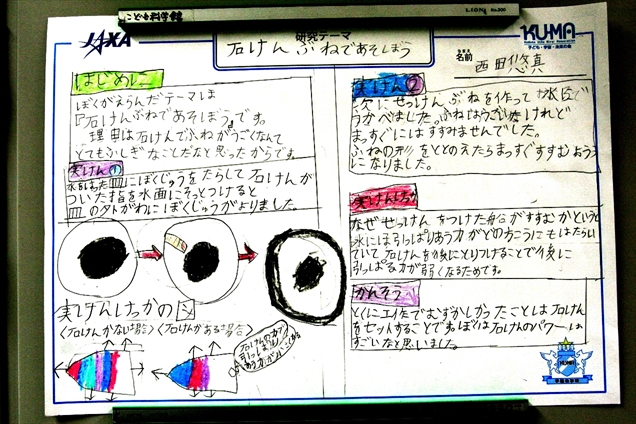 こども科学館
LION No.300
JAXA
研究テーマ
石けんぶねであそぼう
KUMA
子ども・宇宙・未来の会
名前
西田悠真
はじめに
ぼくがえらんだテーマは
『石けんぶねであそぼう』です。
理由は石けんでふねがうごくなんて
とてもふしぎなことだなと思ったからです。
実けん①
水をはった皿にぼくじゅうをたらして石けんが
ついた指を水面にそっとつけると
皿のタトがわにぼくじゅうがよりました。
実けんけっかの図
〈石けんがない場合〉〈石けんがある場合〉
石けんのカで
引っぱり
あう力が
実けん②
次にせっけんぶねを作って水面で
うかべはじめた。ふねはうごいたけれど
まっすぐにはすすみませんでした。
ふねの形をととのえたらまっすぐすすむよう
になりました。
実けんけっか
なぜせっけんをつけた船がすすむかというと
水には引っぱりあう力がどのほうこうにもはたらい
ていて石けんを後にとりつけることで後に
引っぱる力が弱くなるためです。
かんそう
とくに工作でむずかしかったことは石けん
をセットすることです。ぼくは石けんのパワーは
すごいなと思いました。